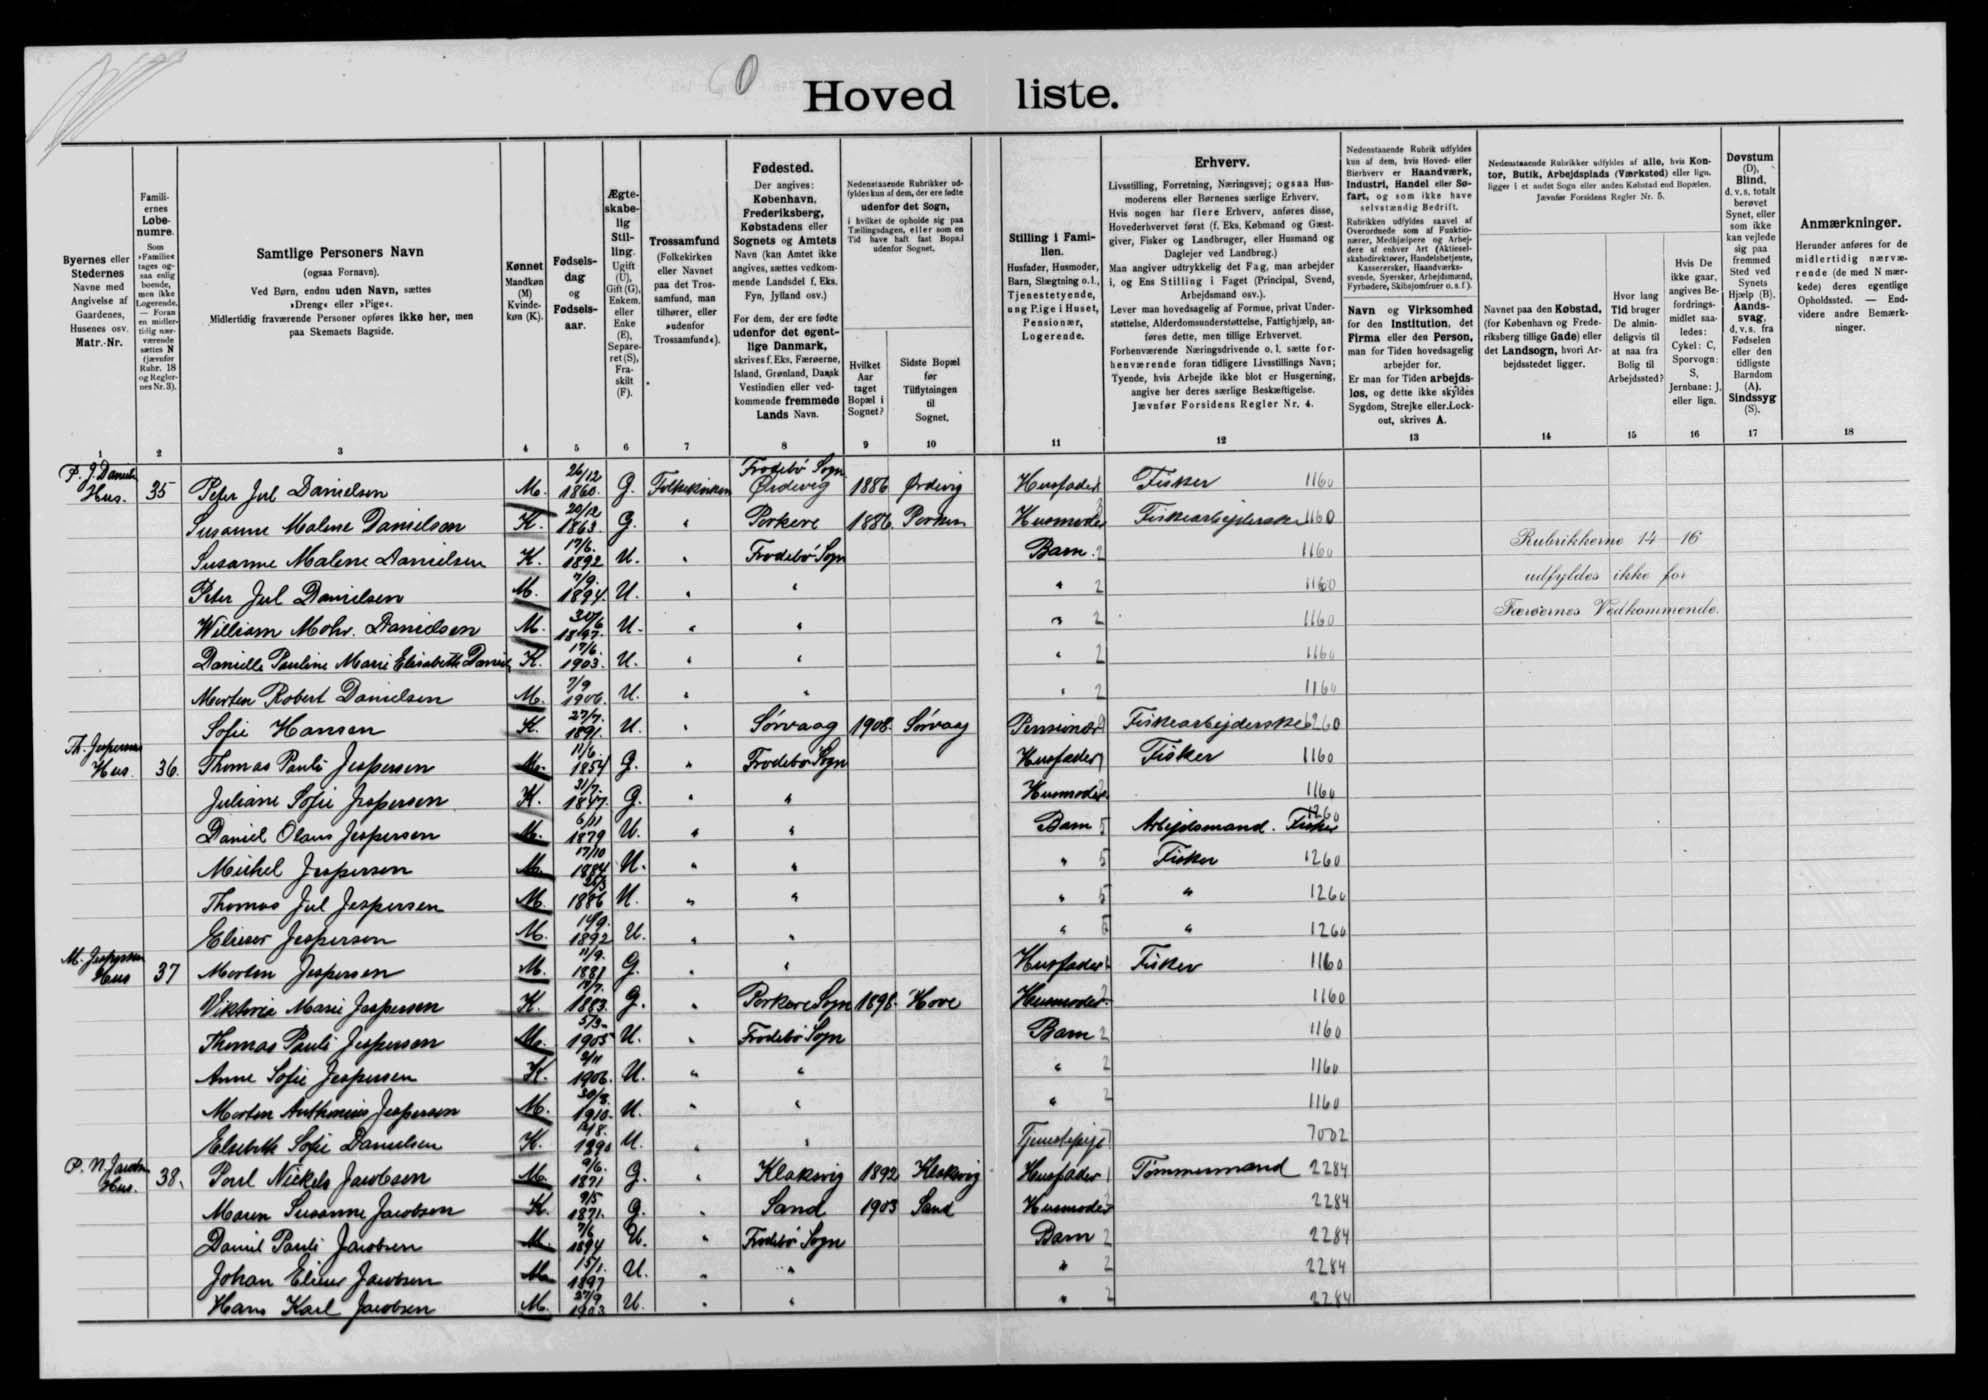 Hoved liste.
Byernes eller Stedernes Navne med Angivelse af Gaardenes, Husenes osv. Matr.-Nr.
Familiernes Løbenumre. Som »Familie« tages ogsaa enlig boende, men ikke Logerende. — Foran en midlertidig nærværende sættes N (jævnfør Rubr. 18 og Reglernes Nr. 3).
Samtlige Personers Navn
(ogsaa Fornavn).
Ved Børn, endnu uden Navn, sættes
»Dreng« eller »Pige«.
Midlertidig fraværende Personer opføres ikke her, men
paa Skemaets Bagside.
Kønnet Mandkøn (M) Kvindekøn (K).
Fødselsdag og Fødselsaar.
Ægteskabelig Stilling. Ugift (U), Gift (G), Enkem. eller Enke (E), Separeret (S), Fraskilt (F).
Trossamfund (Folkekirken eller Navnet paa det Trossamfund, man tilhører, eller »udenfor Trossamfund«).
Fødested.
Der angives: København, Frederiksberg, Købstadens eller Sognets og Amtets Navn (kan Amtet ikke angives, sættes vedkommende Landsdel f. Eks. Fyn, Jylland osv.)
For dem, der ere fødte udenfor det egentlige Danmark, skrives f. Eks. Færøerne, Island, Grønland, Dansk Vestindien eller vedkommende fremmede Lands Navn.
Nedenstaaende Rubrikker udfyldes kun af dem, der ere fødte udenfor det Sogn, i hvilket de opholde sig paa Tællingsdagen, eller som en Tid have haft fast Bopæl udenfor Sognet.
Hvilket Aar taget Bopæl i Sognet?
Sidste Bopæl før Tilflytningen til Sognet.
Stilling i Familien.
Husfader, Husmoder, Barn, Slægtning o.l., Tjenestetyende, ung Pige i Huset, Pensionær, Logerende.
Erhverv.
Livsstilling, Forretning, Næringsvej; ogsaa Husmoderens eller Børnenes særlige Erhverv.
Hvis nogen har flere Erhverv, anføres disse, Hovederhvervet først (f. Eks. Købmand og Gæstgiver, Fisker og Landbruger, eller Husmand og Daglejer ved Landbrug.)
Man angiver udtrykkelig det Fag, man arbejder i, og Ens Stilling i Faget (Principal, Svend, Arbejdsmand osv.).
Lever man hovedsagelig af Formue, privat Understøttelse, Alderdomsunderstøttelse, Fattighjælp, anføres dette, men tillige Erhvervet.
Forhenværende Næringsdrivende o. l. sætte forhenværende foran tidligere Livsstillings Navn; Tyende, hvis Arbejde ikke blot er Husgerning, angive her deres særlige Beskæftigelse.
Jævnfør Forsidens Regler Nr. 4.
Nedenstaaende Rubrik udfyldes kun af dem, hvis Hoved- eller Bierhverv er Haandværk, Industri, Handel eller Søfart, og som ikke have selvstændig Bedrift.
Rubrikken udfyldes saavel af Overordnede som af Funktionærer, Medhjælpere og Arbejdere af enhver Art (Aktieselskabsdirektører, Handelsbetjente, Kasserersker, Haandværkssvende, Syersker, Arbejdsmænd, Fyrbødere, Skibsjomfruer o. s. f.).
Navn og Virksomhed for den Institution, det Firma eller den Person, man for Tiden hovedsagelig arbejder for.
Er man for Tiden arbejdsløs, og dette ikke skyldes Sygdom, Strejke eller Lockout, skrives A.
Nedenstaaende Rubrikker udfyldes af alle, hvis Kontor, Butik, Arbejdsplads (Værksted) eller lign. ligger i et andet Sogn eller anden Købstad end Bopælen.
Jævnfør Forsidens Regler Nr. 5.
Navnet paa den Købstad, (for København og Frederiksberg tillige Gade) eller det Landsogn, hvori Arbejdsstedet ligger.
Hvor lang Tid bruger De almindeligvis til at naa fra Bolig til Arbejdssted?
Hvis De ikke gaar, angives Befordringsmidlet saaledes: Cykel: C, Sporvogn: S, Jernbane: J, eller lign.
Døvstum (D), Blind, d. v. s. totalt berøvet Synet, eller som ikke kan vejlede sig paa fremmed Sted ved Synets Hjælp (B). Aandssvag, d. v. s. fra Fødselen eller den tidligste Barndom (A). Sindssyg (S).
Anmærkninger.
Herunder anføres for de midlertidig nærværende (de med N mærkede) deres egentlige Opholdssted. — Endvidere andre Bemærkninger.
1 2 3 4 5 6 7 8 9 10 11 12 13 14 15 16 17 18
Hus. 35 Peter Jul Danielsen M. 26/12 1860. G. Folkekirken Frodebö Sogn Ørdevig 1886 Ørdevig Husfader Fisker 1160
Susanne Malene Danielsen K. 20/12 1863. G. " Porkere 1886 Porkere Husmoder Fiskearbejderske 1160
Susanne Malene Danielsen K. 17/6. 1892 U. " Frodebö Sogn Barn 2 1160
Rubrikkerne 14-16
Peter Jul Danielsen M. 7/9. 1894. U. " " " 2 1160
udfyldes ikke for
William Mohr. Danielsen M. 1897. U. " " " 2 1160
Færøernes Vedkommende.
Danielle Pauline Marie Elisabeth Daniels K. 17/6. 1903. U. " " " 2 1160
Morten Robert Danielsen M. 7/9 1906. U. " " " 2 1160
Sofie Hansen K. 27/7. 1891. U. " Sörvaag 1908. Sörvaag Pensionær Fiskearbejderske 6260
Th. Jespersens
Hus. 36. Thomas Pauli Jespersen M. 11/6. 1854 G. " Frodebö Sogn Husfader 1 Fisker 1160
Juliane Sofie Jespersen K. 31/7. 1847. G. " " Husmoder 1160
Daniel Olaus Jespersen M. 6/11 1879 U. " " Barn 5 Arbejdsmand. Fisker 1260
Michel Jespersen M. 17/10 1884 U. " " " 5 Fisker 1260
Thomas Jul Jespersen M. 1886 U. " " " 5 " 1260
Elieser Jespersen M. 14/9. 1892 U. " " " 5 " 1260
M. Jespersen
Hus 37 Morten Jespersen M. 11/9. 1881 G. " " Husfader 1 Fisker 1160
Viktoria Marie Jespersen K. 1883. G. " Porkere Sogn 1898. Hove Husmoder 1160
Thomas Pauli Jespersen M. 5/3. 1905 U. " Frodebö Sogn Barn 2 1160
Anne Sofie Jespersen K. 1906. U. " " " 2 1160
Morten Anthonius Jespersen M. 30/3. 1910. U. " " " 2 1160
Elsebeth Sofie Danielsen K. 1890 U. " " Tjenestepige 7002
P. N. Jacobsen
Hus. 38. Poul Nickels Jacobsen M. 9/6. 1871 G. " Klaksvig 1892 Klaksvig Husfader 1 Tømmermand 2284
Maren Susanne Jacobsen K. 9/5 1871. G. " Sand 1903 Sand Husmoder 2284
Daniel Pauli Jacobsen M. 7/6 1894 U. " Frodebö Sogn Barn 2 2284
Johan Elieser Jacobsen M. 15/1. 1897 U. " " " 2 2284
Hans Karl Jacobsen M. 27/9 1903 U. " " " 2 2284